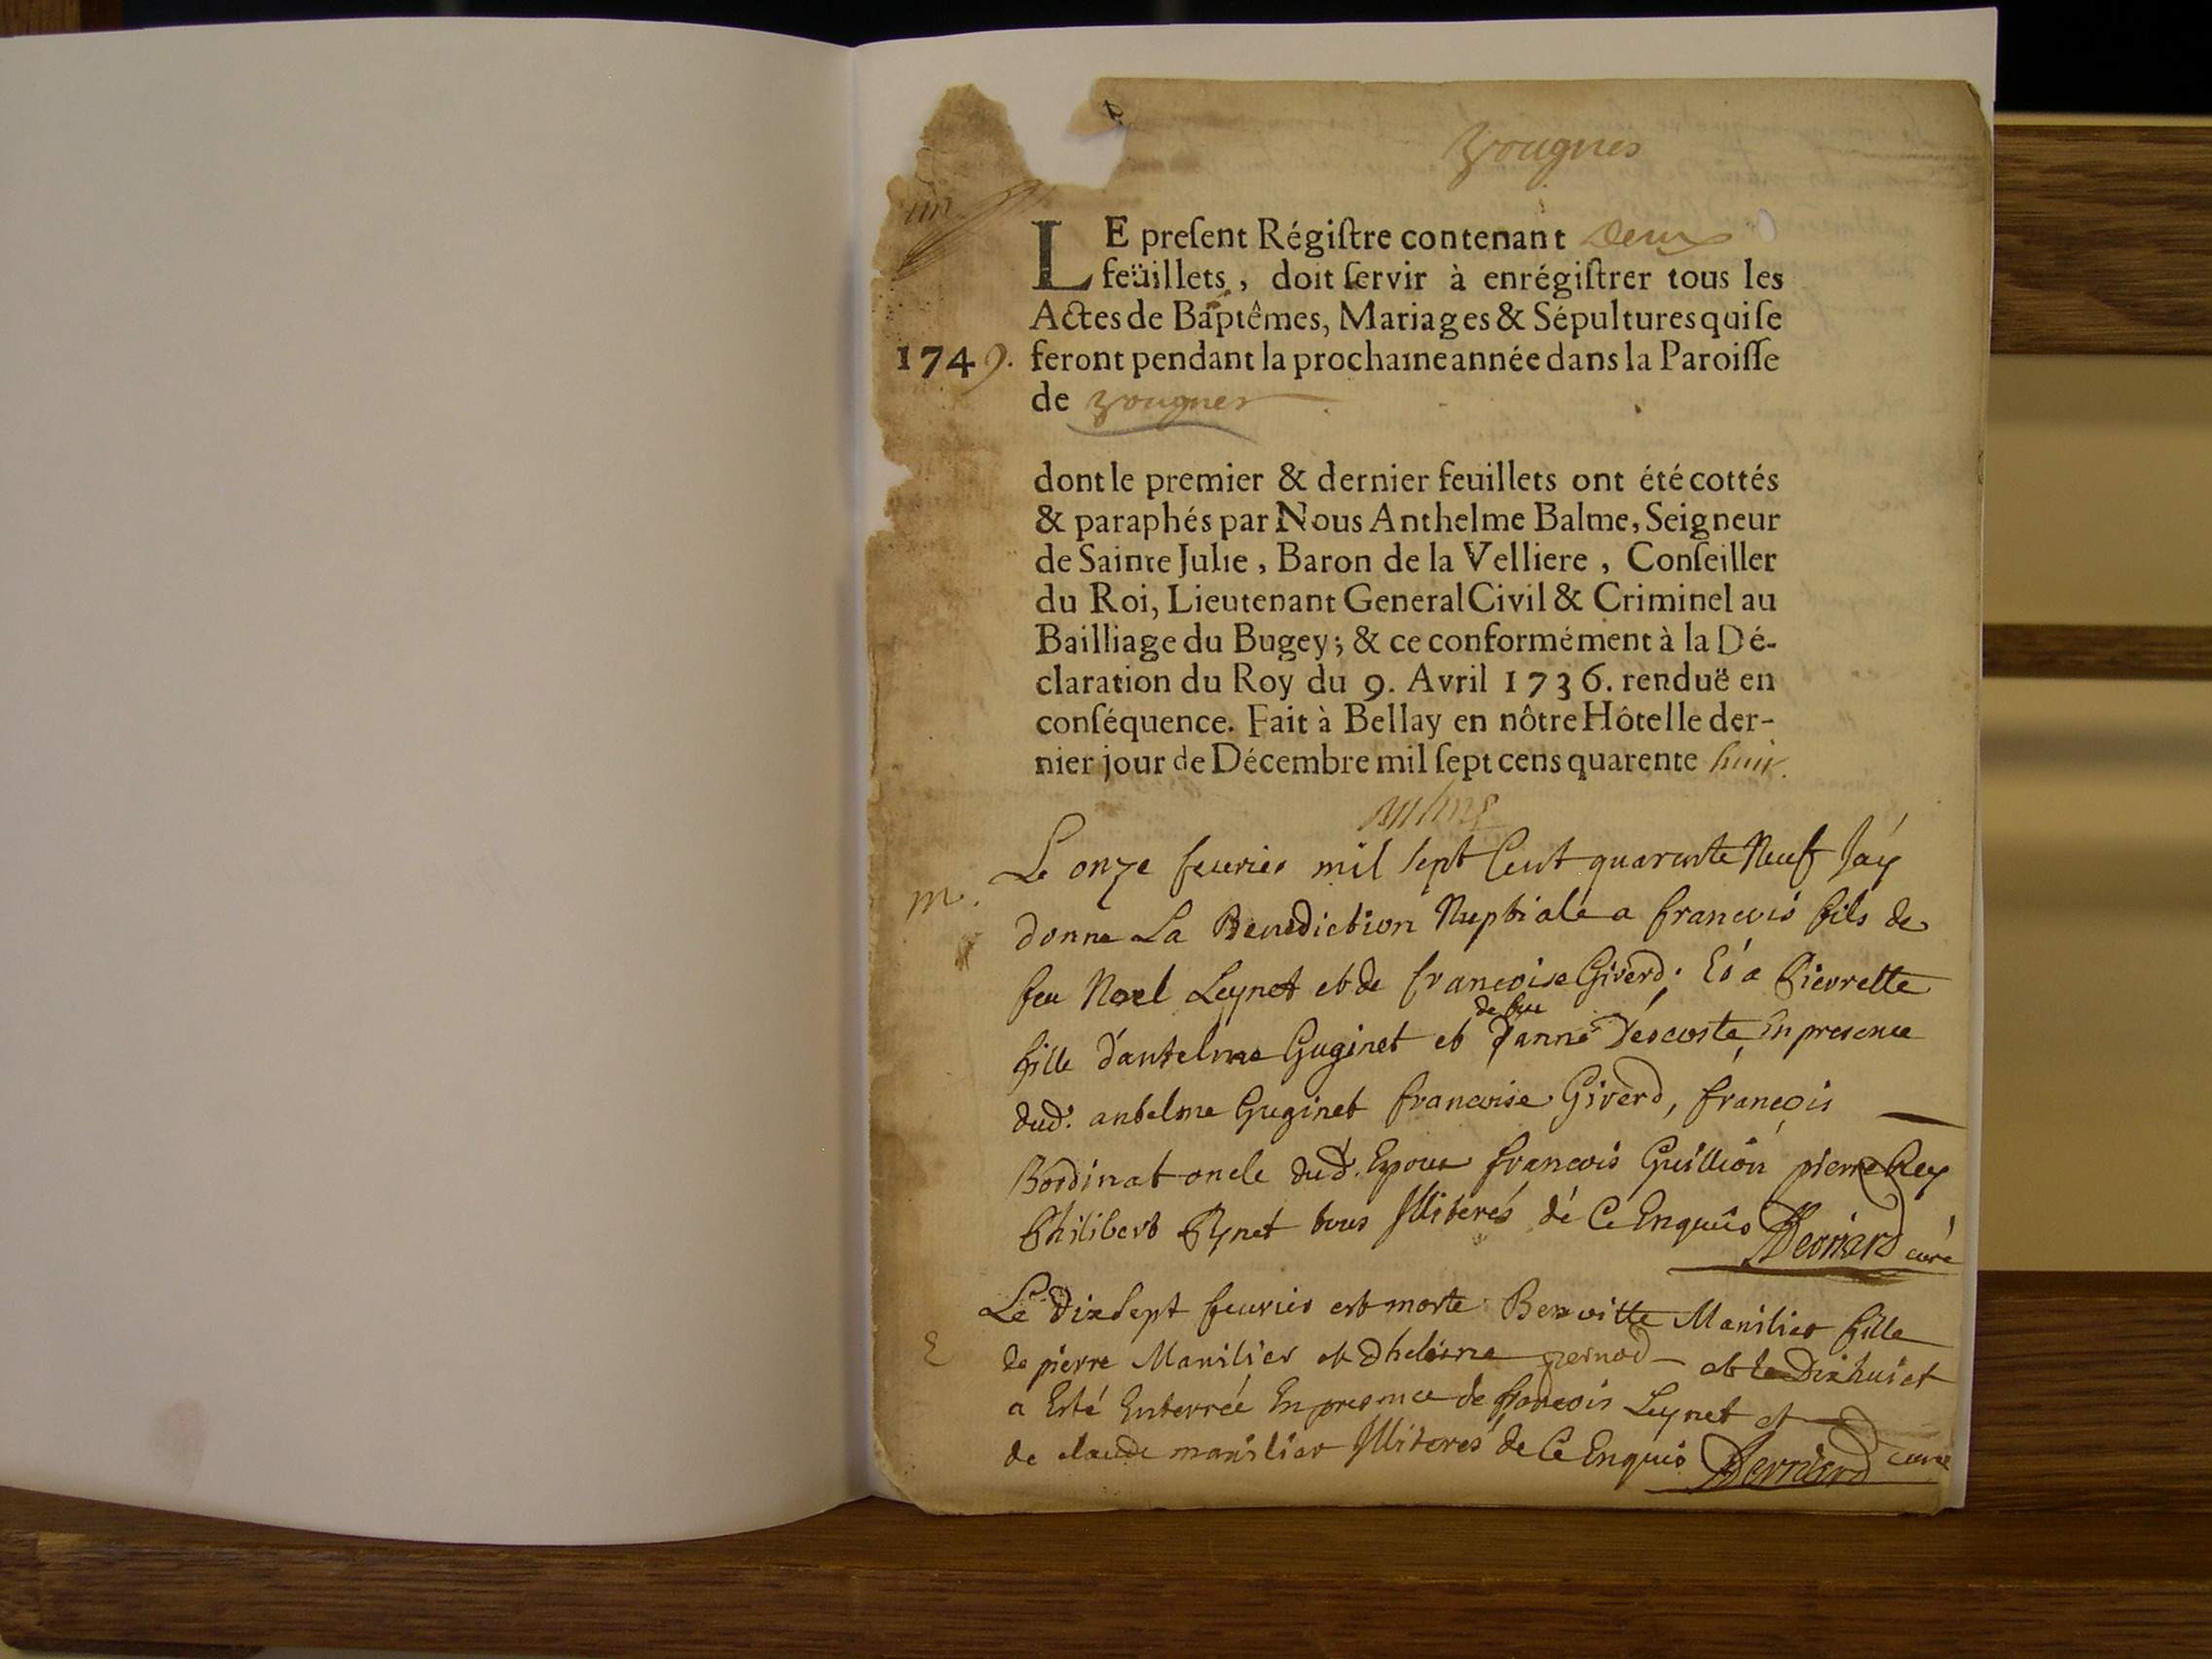 Yougnes
un
LE preſent Régiſtre contenant Deux
feüillets, doit ſervir à enrégiſtrer tous les
Actes de Baptêmes, Mariages & Sépultures qui ſe
1749. feront pendant la prochaine année dans la Paroiſſe
de Yougnes
dont le premier & dernier feuillets ont été cottés
& paraphés par Nous Anthelme Balme, Seigneur
de Sainte Julie, Baron de la Velliere, Conſeiller
du Roi, Lieutenant General Civil & Criminel au
Bailliage du Bugey; & ce conformément à la Dé-
claration du Roy du 9. Avril 1736. renduë en
conſéquence. Fait à Bellay en nôtre Hôtel le der-
nier jour de Décembre mil ſept cens quarente huit.
Le onze feuvrier mil sept Cent quarante Neuf Jáy
m.
donne La Benediction Nuptiale a francois fils de
feu Noel Leynet et de francoise Giverd; Et a Pierrette
de feu
fille d'antelme Guginet et d'anne Descoste, En presence
dud. antelme Guginet francoise Giverd, françois
Bordinat oncle dud. Epoux francois Guillion pierre Rey
Philibert Rynet tous Illiterés de Ce Enquis Berriard curé
Le Dixsept feuvrier est morte Benoitte Manilier fille
E
de pierre Manilier et Dheleine pernod et le Dixhuict
a Esté Enterrée En presence de francois Leynet et
de claude manilier Illiterés de Ce Enquis Berriard curé